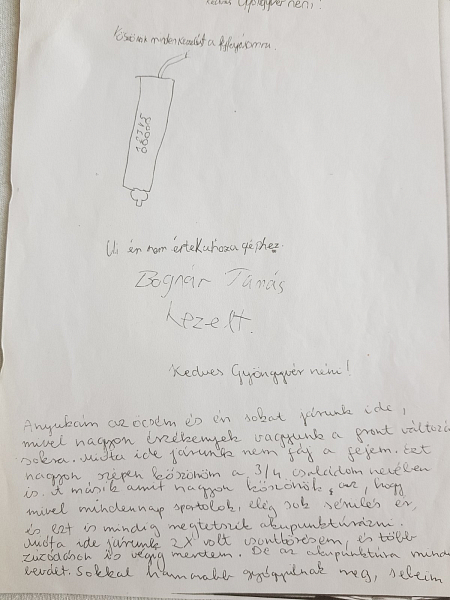 Kedves Gyöngyvér néni!
Köszönöm minden kezelést a
Ui én nem értek a géphez.
Bognár Tamás
Kezelt.
Kedves Gyöngyvér néni!
Anyukám az öcsém és én sokat járunk ide,
mivel nagyon érzékenyek vagyunk a front változá
sokra. Mióta ide járunk nem fáj a fejem. Ezt
nagyon szépen köszönöm a 3/4 családom nevében
is. A másik amit nagyon köszönök, az, hogy
mivel mindennap sportolok, elég sok sérülés ér,
és ezt is mindig megtetszik akupunktúrázni.
Mióta ide járunk 2X volt csonttörésem, és több
zúzódáson is végig mentem. De az akupunktúra mind
bevált. Sokkal hamarabb gyógyulnak meg, sebeim